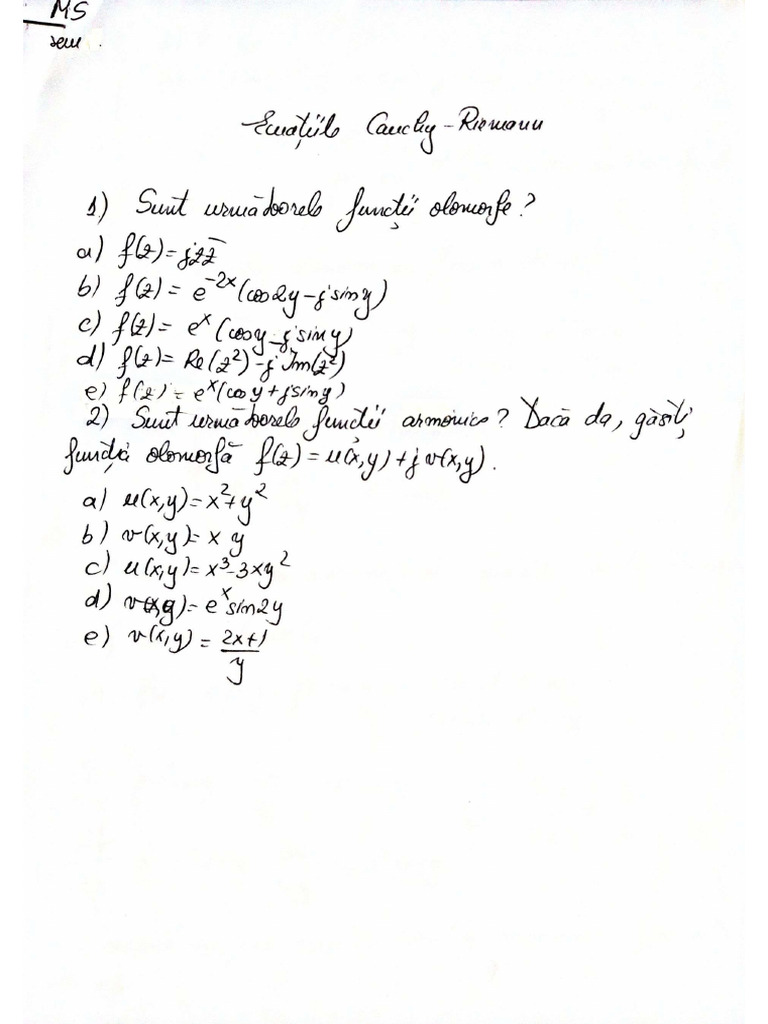 MS
sem.
Ecuațiile Cauchy-Riemann
1) Sunt următoarele funcții olomorfe?
a) f(z)=jzz̄
b) f(z) = e^{-2x}(cos2y-j siny)
c) f(z) = e^x(cosy-j siny)
d) f(z)= Re(z²)-j Im(z²)
e) f(z) = e^x(cosy+jsiny)
2) Sunt următoarele funcții armonice? Dacă da, găsiți
funcția olomorfă f(z) = u(x,y)+j v(x,y).
a) u(x,y)=x²+y²
b) v(x,y)= x y
c) u(x,y)= x³-3xy²
d) v(x,y)= e^x sin2y
e) v(x,y) = (2x+1)/y